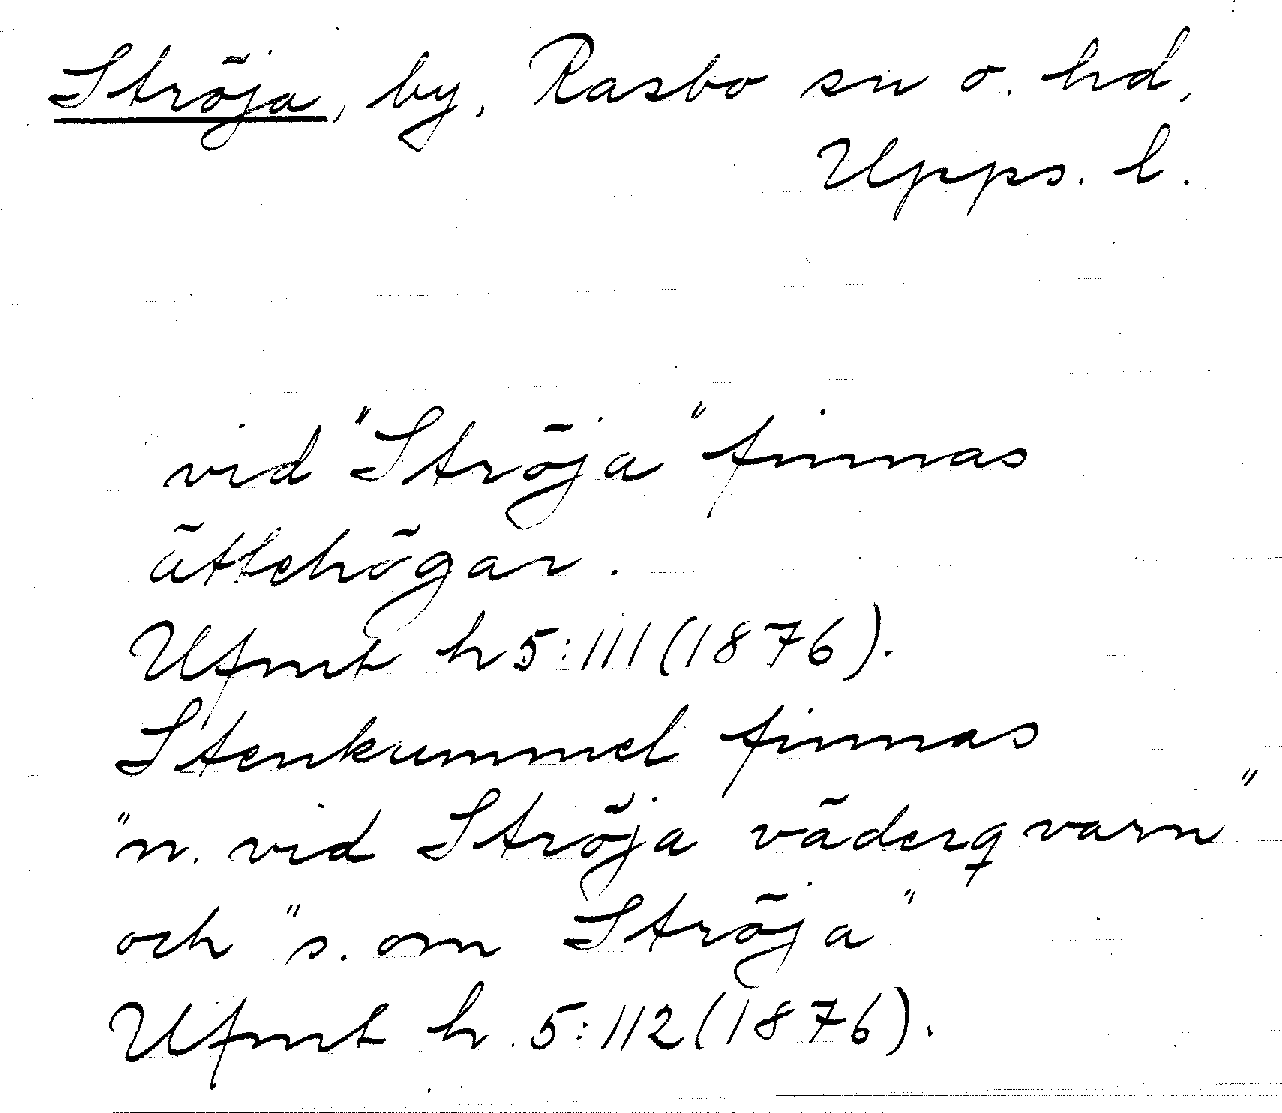 Ströja, by, Rasbo sn o. hd,
Upps. l.
vid "Ströja" finnas
ättehögar.
Ufmt h 5:111(1876).
Stenkummel finnas
"n. vid Ströja väderqvarn"
och "s. om Ströja"
Ufmt h. 5:112(1876).